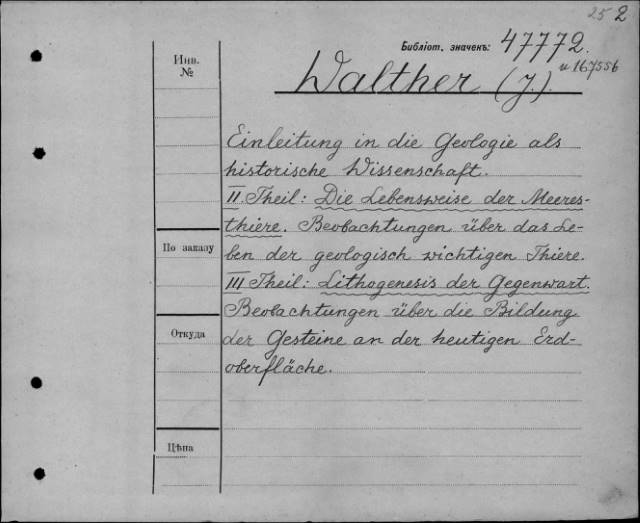 25 2
Библіот. значекъ: 47772.
и 167556
Инв.
№
Walther (J.).
Einleitung in die Geologie als
historische Wissenschaft.
II. Theil: Die Lebensweise der Meeres-
thiere. Beobachtungen über das Le-
ben der geologisch wichtigen Thiere.
По заказу
III Theil: Lithogenesis der Gegenwart.
Beobachtungen über die Bildung
Откуда
der Gesteine an der heutigen Erd-
oberfläche.
Цѣна